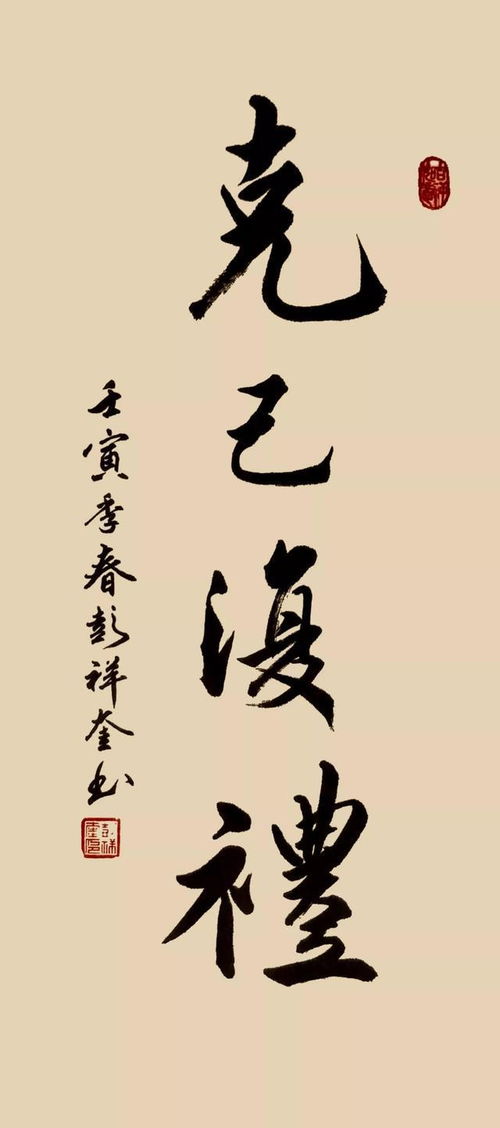 克己復禮
壬寅季春彭祥奎书